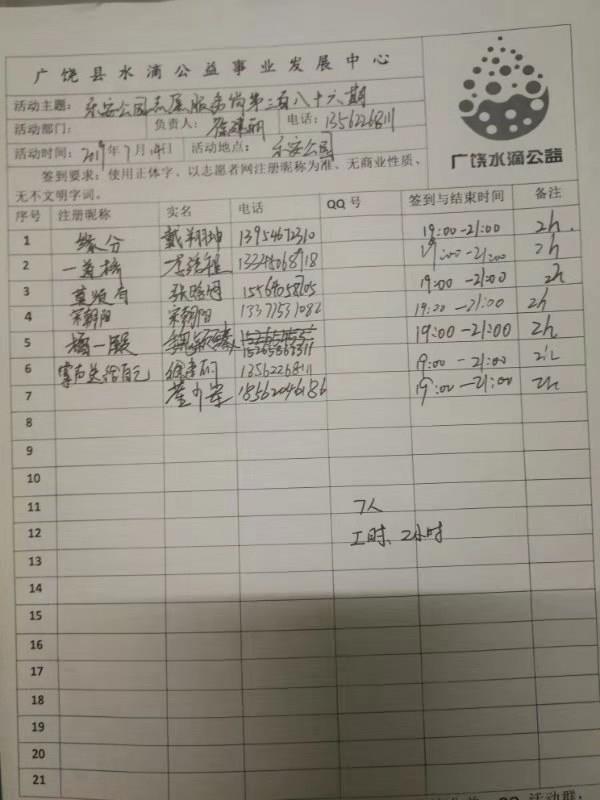 广饶县水滴公益事业发展中心
活动主题: 乐安公园志愿服务岗第二百八十六期
活动部门: 负责人: 徐建朝 电话: 13562268111
活动时间: 2019年7月14日 活动地点: 乐安公园
签到要求: 使用正体字、以志愿者网注册昵称为准、无商业性质、
无不文明字词。
广饶水滴公益
序号 注册昵称 实名 电话 QQ 号 签到与结束时间 备注
1 缘分 戴翔坤 13954672310 19:00-21:00 2h.
2 13345068918 19:00-21:00 2h
3 莫须有 张晓 15564058705 19:00-21:00 2h
4 宋朝阳 宋朝阳 19:00-21:00 2h
5 橘一般 15265367311 19:00-21:00 2h
6 掌声送给自己 徐建朝 13562268111 19:00-21:00 2h
7 18562046186 19:00-21:00 2h
8
9
10
11 7人
12 工时、2小时
13
14
15
16
17
18
19
20
21